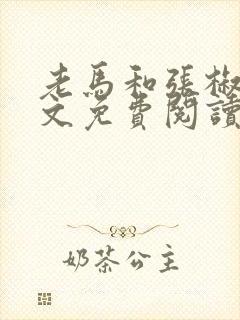 老馬和張椒
文免費閱讀
奶茶公主